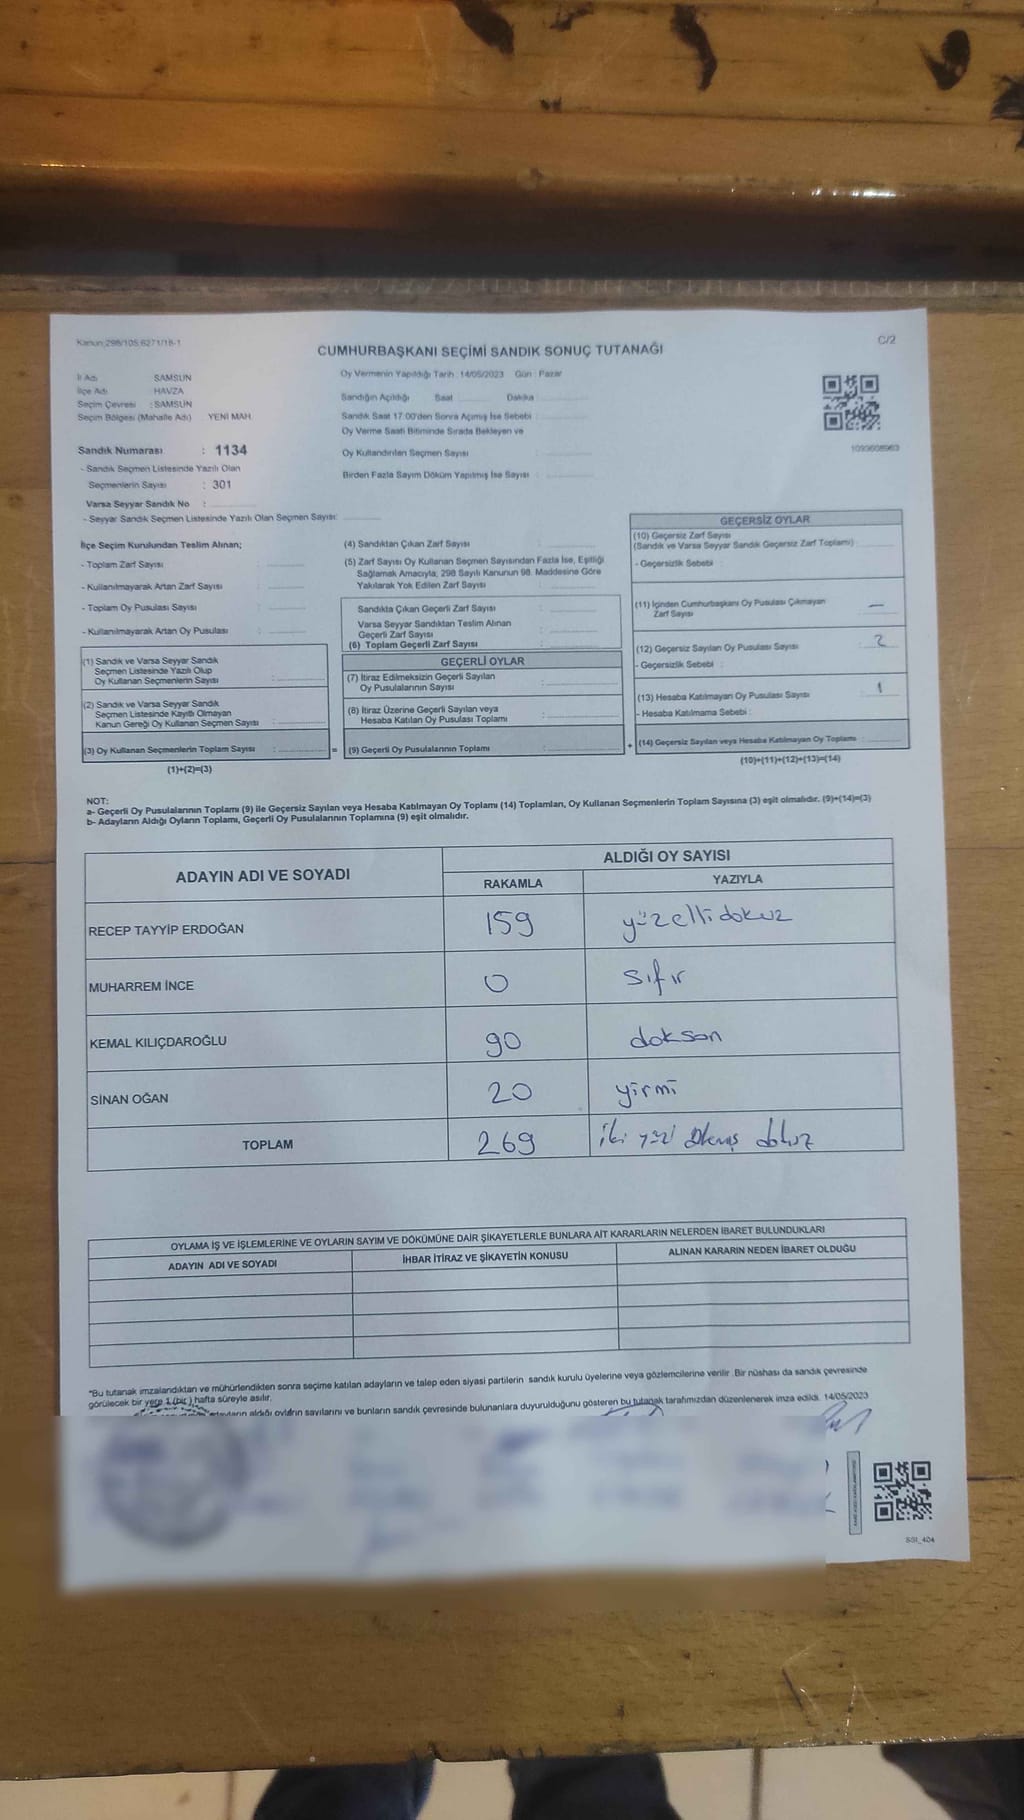 Kanun:298/105.6271/18-1
C/2
CUMHURBAŞKANI SEÇİMİ SANDIK SONUÇ TUTANAĞI
İl Adı SAMSUN
İlçe Adı : HAVZA
Seçim Çevresi : SAMSUN
Seçim Bölgesi (Mahalle Adı) YENİ MAH.
Oy Vermenin Yapıldığı Tarih : 14/05/2023 Gün : Pazar
Sandığın Açıldığı Saat Dakika
Sandık Saat 17:00'den Sonra Açımış İse Sebebi :
Oy Verme Saati Bitiminde Sırada Bekleyen ve
Oy Kullandırılan Seçmen Sayısı
Birden Fazla Sayım Döküm Yapılmış İse Sayısı
Sandık Numarası : 1134
- Sandık Seçmen Listesinde Yazılı Olan
Seçmenlerin Sayısı : 301
Varsa Seyyar Sandık No :
- Seyyar Sandık Seçmen Listesinde Yazılı Olan Seçmen Sayısı:
İlçe Seçim Kurulundan Teslim Alınan;
- Toplam Zarf Sayısı :
- Kullanılmayarak Artan Zarf Sayısı
- Toplam Oy Pusulası Sayısı :
- Kullanılmayarak Artan Oy Pusulası :
(1) Sandık ve Varsa Seyyar Sandık
Seçmen Listesinde Yazılı Olup
Oy Kullanan Seçmenlerin Sayısı :
(2) Sandık ve Varsa Seyyar Sandık
Seçmen Listesinde Kayıtlı Olmayan
Kanun Gereği Oy Kullanan Seçmen Sayısı :
(3) Oy Kullanan Seçmenlerin Toplam Sayısı : =
(1)+(2)=(3)
(4) Sandıktan Çıkan Zarf Sayısı :
(5) Zarf Sayısı Oy Kullanan Seçmen Sayısından Fazla İse, Eşitliği
Sağlamak Amacıyla, 298 Sayılı Kanunun 98. Maddesine Göre
Yakılarak Yok Edilen Zarf Sayısı :
Sandıkta Çıkan Geçerli Zarf Sayısı :
Varsa Seyyar Sandıktan Teslim Alınan
Geçerli Zarf Sayısı :
(6) Toplam Geçerli Zarf Sayısı :
GEÇERLİ OYLAR
(7) İtiraz Edilmeksizin Geçerli Sayılan
Oy Pusulalarının Sayısı :
(8) İtiraz Üzerine Geçerli Sayılan veya
Hesaba Katılan Oy Pusulası Toplamı :
(9) Geçerli Oy Pusulalarının Toplamı : +
GEÇERSİZ OYLAR
(10) Geçersiz Zarf Sayısı
(Sandık ve Varsa Seyyar Sandık Geçersiz Zarf Toplamı)
- Geçersizlik Sebebi :
(11) İçinden Cumhurbaşkanı Oy Pusulası Çıkmayan
Zarf Sayısı —
(12) Geçersiz Sayılan Oy Pusulası Sayısı 2
- Geçersizlik Sebebi :
(13) Hesaba Katılmayan Oy Pusulası Sayısı 1
- Hesaba Katılmama Sebebi :
(14) Geçersiz Sayılan veya Hesaba Katılmayan Oy Toplamı :
(10)+(11)+(12)+(13)=(14)
NOT:
a- Geçerli Oy Pusulalarının Toplamı (9) ile Geçersiz Sayılan veya Hesaba Katılmayan Oy Toplamı (14) Toplamları, Oy Kullanan Seçmenlerin Toplam Sayısına (3) eşit olmalıdır. (9)+(14)=(3)
b- Adayların Aldığı Oyların Toplamı, Geçerli Oy Pusulalarının Toplamına (9) eşit olmalıdır.
ADAYIN ADI VE SOYADI
ALDIĞI OY SAYISI
RAKAMLA YAZIYLA
RECEP TAYYİP ERDOĞAN 159 yüzellidokuz
MUHARREM İNCE 0 sıfır
KEMAL KILIÇDAROĞLU 90 doksan
SİNAN OĞAN 20 yirmi
TOPLAM 269 iki yüz dokuz
OYLAMA İŞ VE İŞLEMLERİNE VE OYLARIN SAYIM VE DÖKÜMÜNE DAİR ŞİKAYETLERLE BUNLARA AİT KARARLARIN NELERDEN İBARET BULUNDUKLARI
ADAYIN ADI VE SOYADI İHBAR İTİRAZ VE ŞİKAYETİN KONUSU ALINAN KARARIN NEDEN İBARET OLDUĞU
*Bu tutanak imzalandıktan ve mühürlendikten sonra seçime katılan adayların ve talep eden siyasi partilerin sandık kurulu üyelerine veya gözlemcilerine verilir. Bir nüshası da sandık çevresinde
görülecek bir yere 1 (bir) hafta süreyle asılır.
aldığı oyların sayılarını ve bunların sandık çevresinde bulunanlara duyurulduğunu gösteren bu tutanak tarafımızdan düzenlenerek imza edildi. 14/05/2023